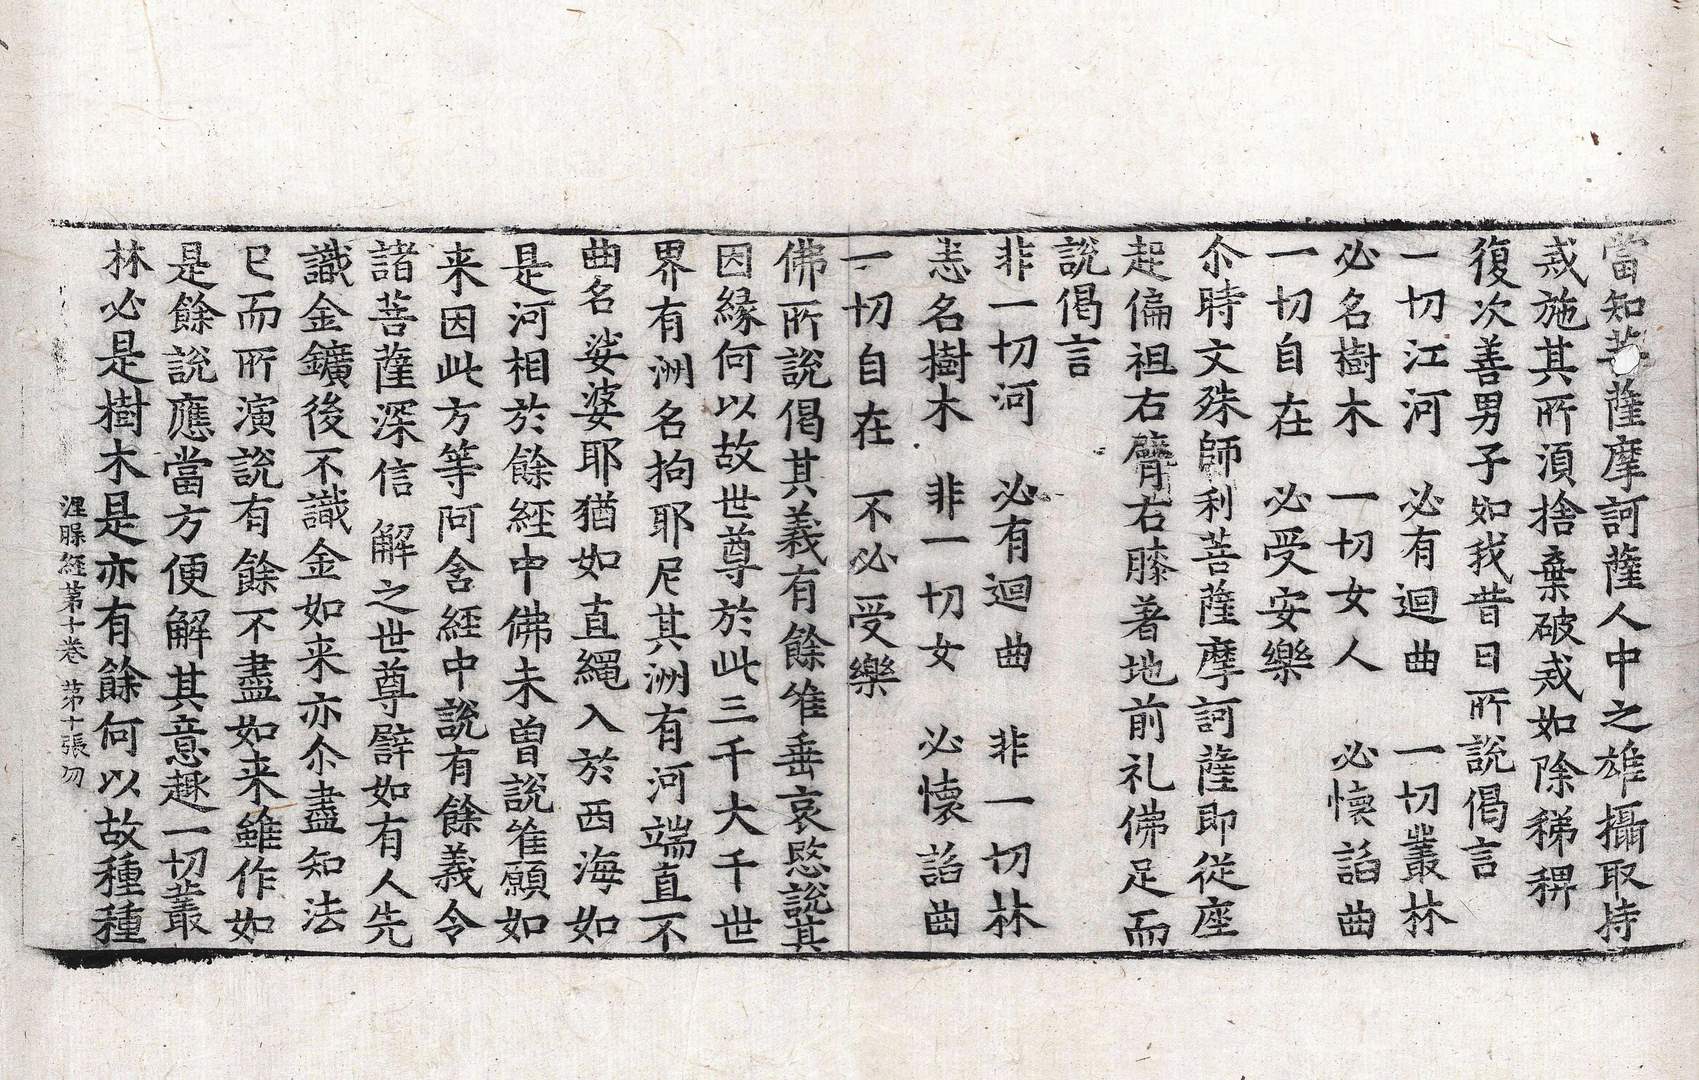 當知菩薩摩訶薩人中之雄攝取持
戒施其所湏捨棄破戒如除稊稗
復次善男子如我昔日所說偈言
一切江河　必有迴曲　一切叢林
必名樹木　一切女人　必懷諂曲
一切自在　必受安樂
尒時文殊師利菩薩摩訶薩即從座
起偏袒右臂右膝著地前礼佛足而
說偈言
非一切河　必有迴曲　非一切林
悉名樹木　非一切女　必懷諂曲
一切自在　不必受樂
佛所說偈其義有餘唯垂哀愍說其
因緣何以故世尊於此三千大千世
界有洲名拘耶尼其洲有河端直不
曲名娑婆耶猶如直繩入於西海如
是河相於餘經中佛未曾說唯願如
来因此方等阿含經中說有餘義令
諸菩薩深信解之世尊譬如有人先
識金鑛後不識金如来亦尒盡知法
已而所演說有餘不盡如来雖作如
是餘說應當方便解其意趣一切叢
林必是樹木是亦有餘何以故種種
涅槃經第十卷　第十張　勿